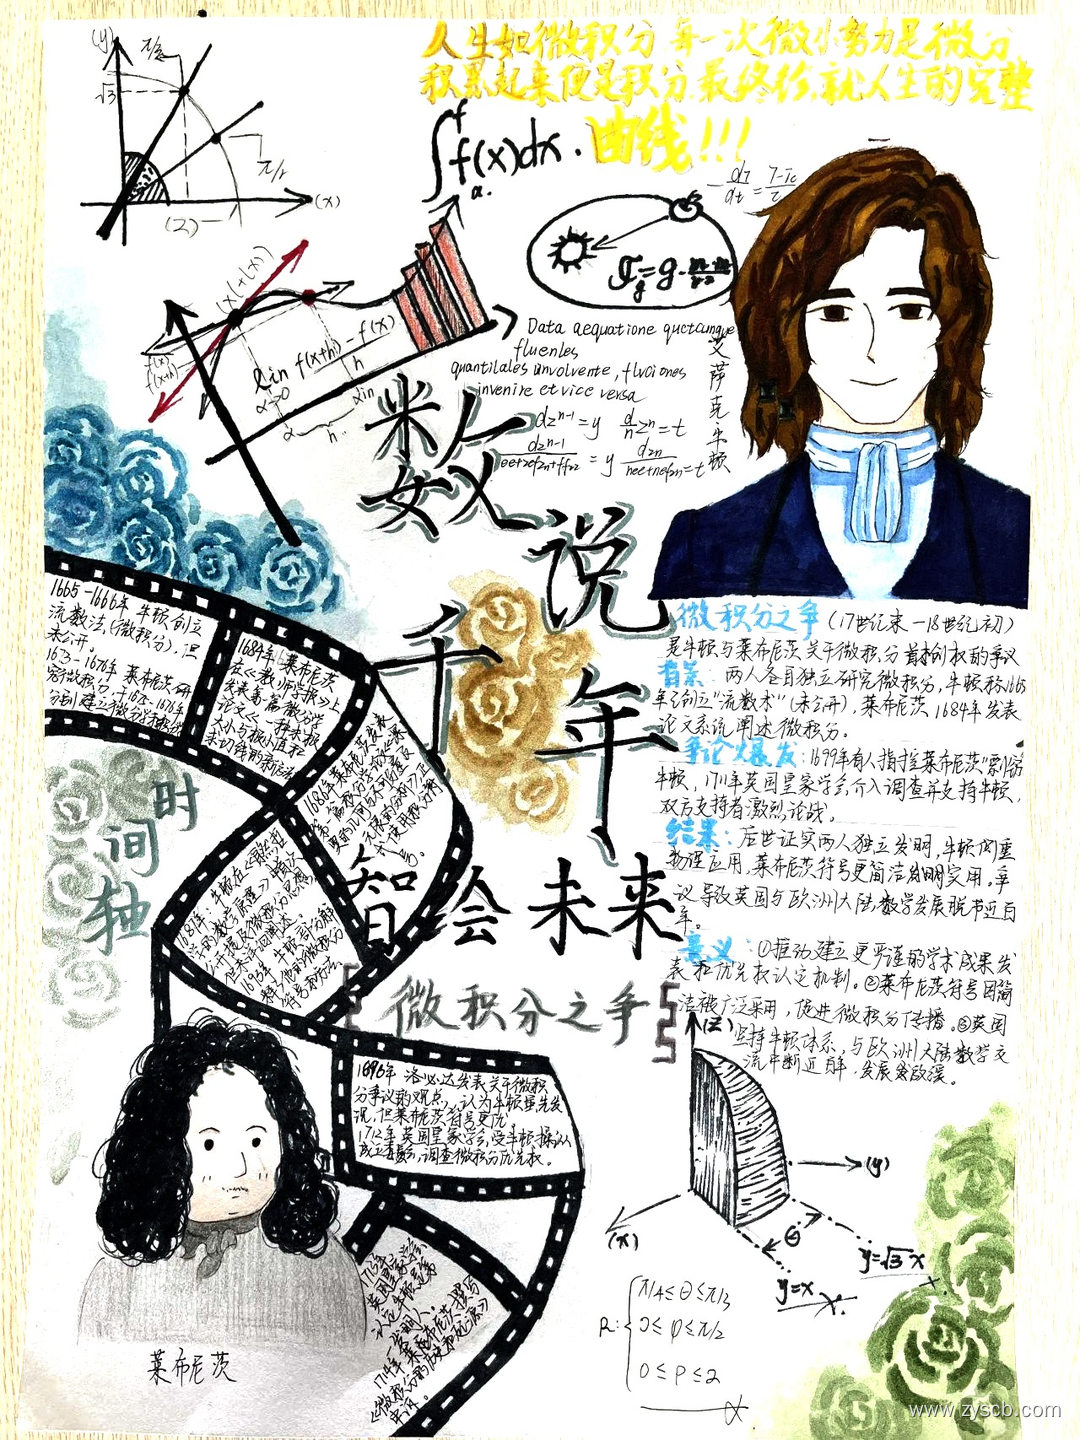 人生如微积分 每一次微小努力是微分
积累起来便是积分,最终你就人生的完整
曲线!!!
(y)
π/3
√3
(2)
(x)
∫ f(x)dx.
Data aequatione quotcunque
fluenles
quantilales involvente, flvciones
invenire et vice versa
艾萨克·牛顿
lin f(x+h)-f(x)
h
数说千年
智绘未来
[微积分之争]
时间独
微积分之争(17世纪末-18世纪初)
是牛顿与莱布尼茨关于微积分最初创权的争议
背景:两人各自独立研究微积分,牛顿称1665
年创立"流数术"(未公开),莱布尼茨1684年发表
论文系统阐述微积分。
争论爆发:1699年有人指控莱布尼茨"剽窃"
牛顿,1711年英国皇家学会介入调查并支持牛顿,
双方支持者激烈论战。
结果:后世证实两人独立发明,牛顿侧重
物理应用,莱布尼茨符号更简洁实用。争
议导致英国与欧洲大陆数学发展脱节近百
年。
意义:①推动建立更严谨的学术成果发
表和优先权认定机制。②莱布尼茨符号因简
洁被广泛采用,促进微积分传播。③英国
坚持牛顿体系,与欧洲大陆数学交
流中断近百年,发展缓慢。
1665-1666年 牛顿创立
流数法,(微积分),但
未公开。
1673-1676年 莱布尼茨研
究微积分,于1675-1676年
分别建立微分
1684年,莱布尼茨
在《教师学报》上
发表第一篇微分学
论文《一种求极
大小与极小值和
求切线的新方法
1686年莱布尼茨发表
1687年 牛顿在《自然哲
学的数学原理》中首次
公开提及微积分思想,
但未详细阐述。
1693年 牛顿部分解
释了他的微积分
符号和方法。
1696年 洛必达发表关于微积
分争议的观点,认为牛顿是先发
现,但莱布尼茨符号更优
1712年 英国皇家学会,受牛顿操纵认
成立委员会,调查微积分优先权。
1713年
英国皇家学会
认定牛顿是第
一发明人。
1714年 莱布尼茨撰写
《微积分的历史和起源》
申诉。
莱布尼茨
(z)
(y)
(x)
θ
y=√3 x
y=x
R: π/4≤θ≤π/3
0≤φ≤π/2
0≤P≤2
www.zyscb.com